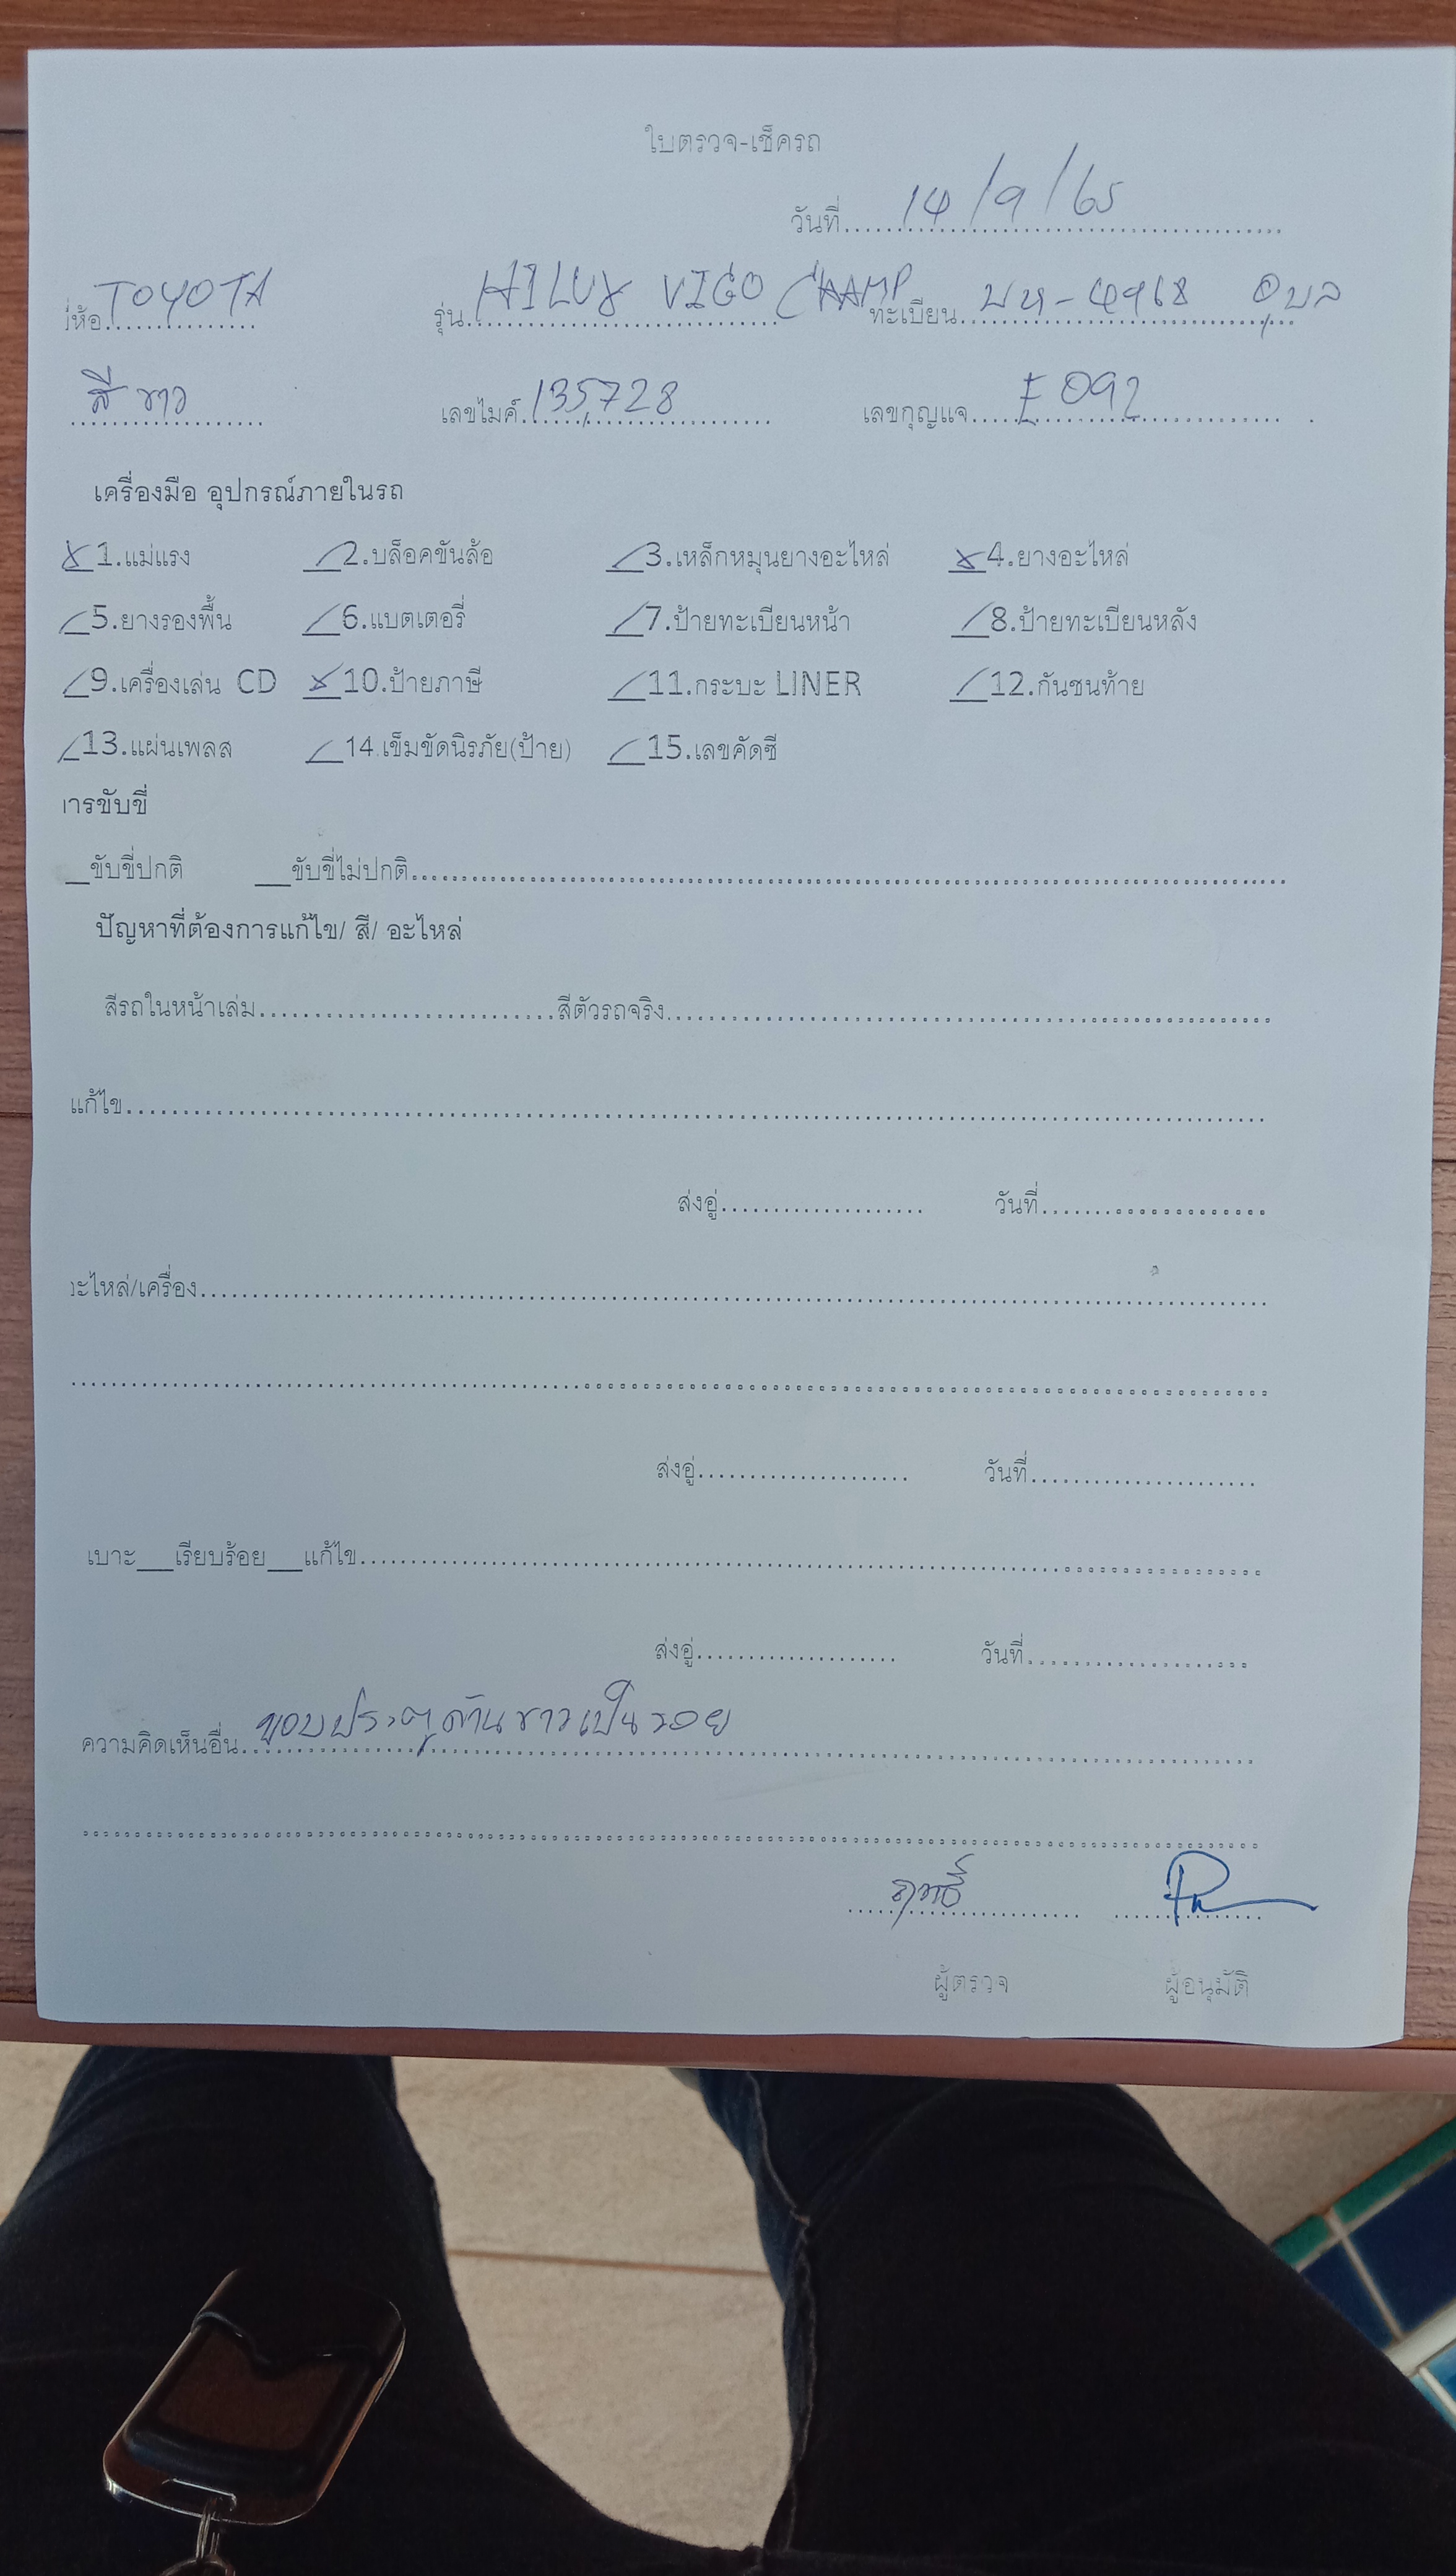 ใบตรวจ-เช็ครถ
วันที่ 14/9/65
ี่ห้อ TOYOTA รุ่น HILUX VIGO CHAMP ทะเบียน บห-4968 อุบล
สี ขาว เลขไมค์ 135,728 เลขกุญแจ E092
เครื่องมือ อุปกรณ์ภายในรถ
1.แม่แรง 2.บล็อคขันล้อ 3.เหล็กหมุนยางอะไหล่ 4.ยางอะไหล่
5.ยางรองพื้น 6.แบตเตอรี่ 7.ป้ายทะเบียนหน้า 8.ป้ายทะเบียนหลัง
9.เครื่องเล่น CD 10.ป้ายภาษี 11.กระบะ LINER 12.กันชนท้าย
13.แผ่นเพลส 14.เข็มขัดนิรภัย(ป้าย) 15.เลขคัดซี
ารขับขี่
__ขับขี่ปกติ __ขับขี่ไม่ปกติ
ปัญหาที่ต้องการแก้ไข/ สี/ อะไหล่
สีรถในหน้าเล่ม สีตัวรถจริง
แก้ไข
ส่งอู่ วันที่
ะไหล่/เครื่อง
ส่งอู่ วันที่
เบาะ__เรียบร้อย__แก้ไข
ส่งอู่ วันที่
ความคิดเห็นอื่น ขอบประตูด้านขาวเป็นรอย
ฤทธิ์
ผู้ตรวจ ผู้อนุมัติ